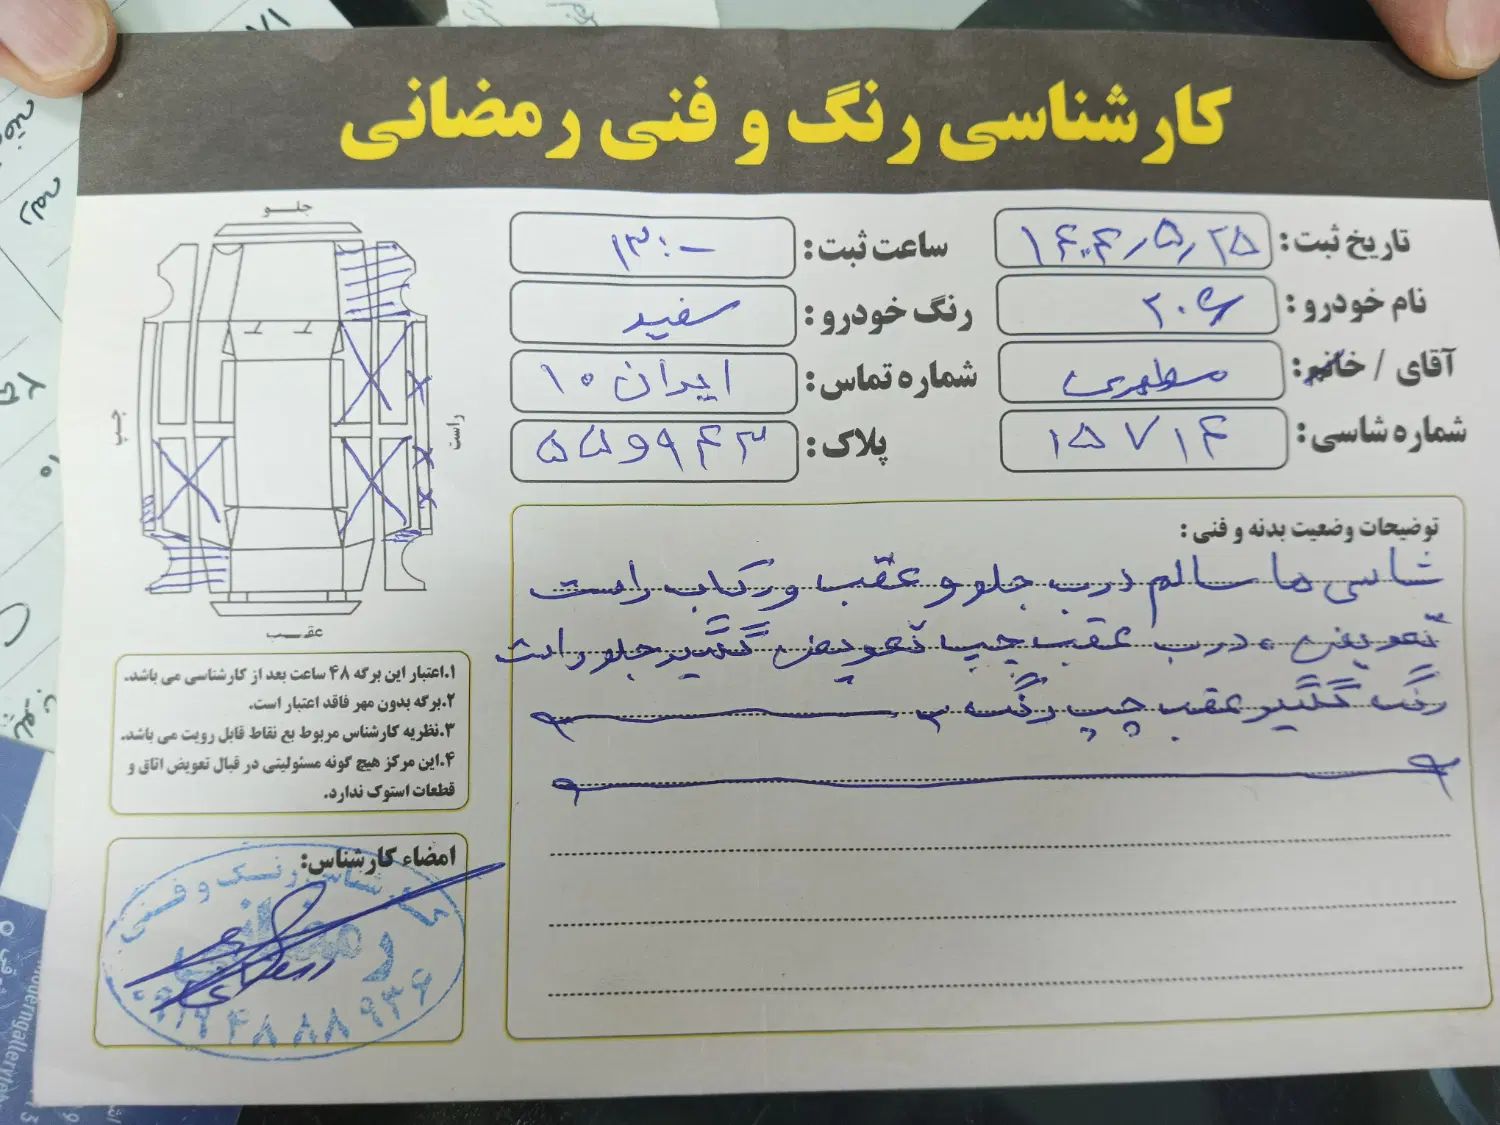 کارشناسی رنگ و فنی رمضانی
تاریخ ثبت: ۱۴۰۴/۵/۲۵
ساعت ثبت: ۱۳:۰۰
نام خودرو: ۲۰۶
رنگ خودرو: سفید
آقای / خانم: مطهری
شماره تماس: ایران ۱۰
شماره شاسی: ۱۵۷۱۴
پلاک: ۵۵و۹۴۳
جلو
چپ
راست
عقب
توضیحات وضعیت بدنه و فنی:
شاسی ها سالم درب جلو و عقب و رکاب راست
تعویض، درب عقب چپ تعویض گلگیر جلو راست
رنگ گلگیر عقب چپ رنگ
۱.اعتبار این برگه ۴۸ ساعت بعد از کارشناسی می باشد.
۲.برگه بدون مهر فاقد اعتبار است.
۳.نظریه کارشناس مربوط بع نقاط قابل رویت می باشد.
۴.این مرکز هیچ گونه مسئولیتی در قبال تعویض اتاق و
قطعات استوک ندارد.
امضاء کارشناس:
کارشناسی رنگ و فنی
رمضانی